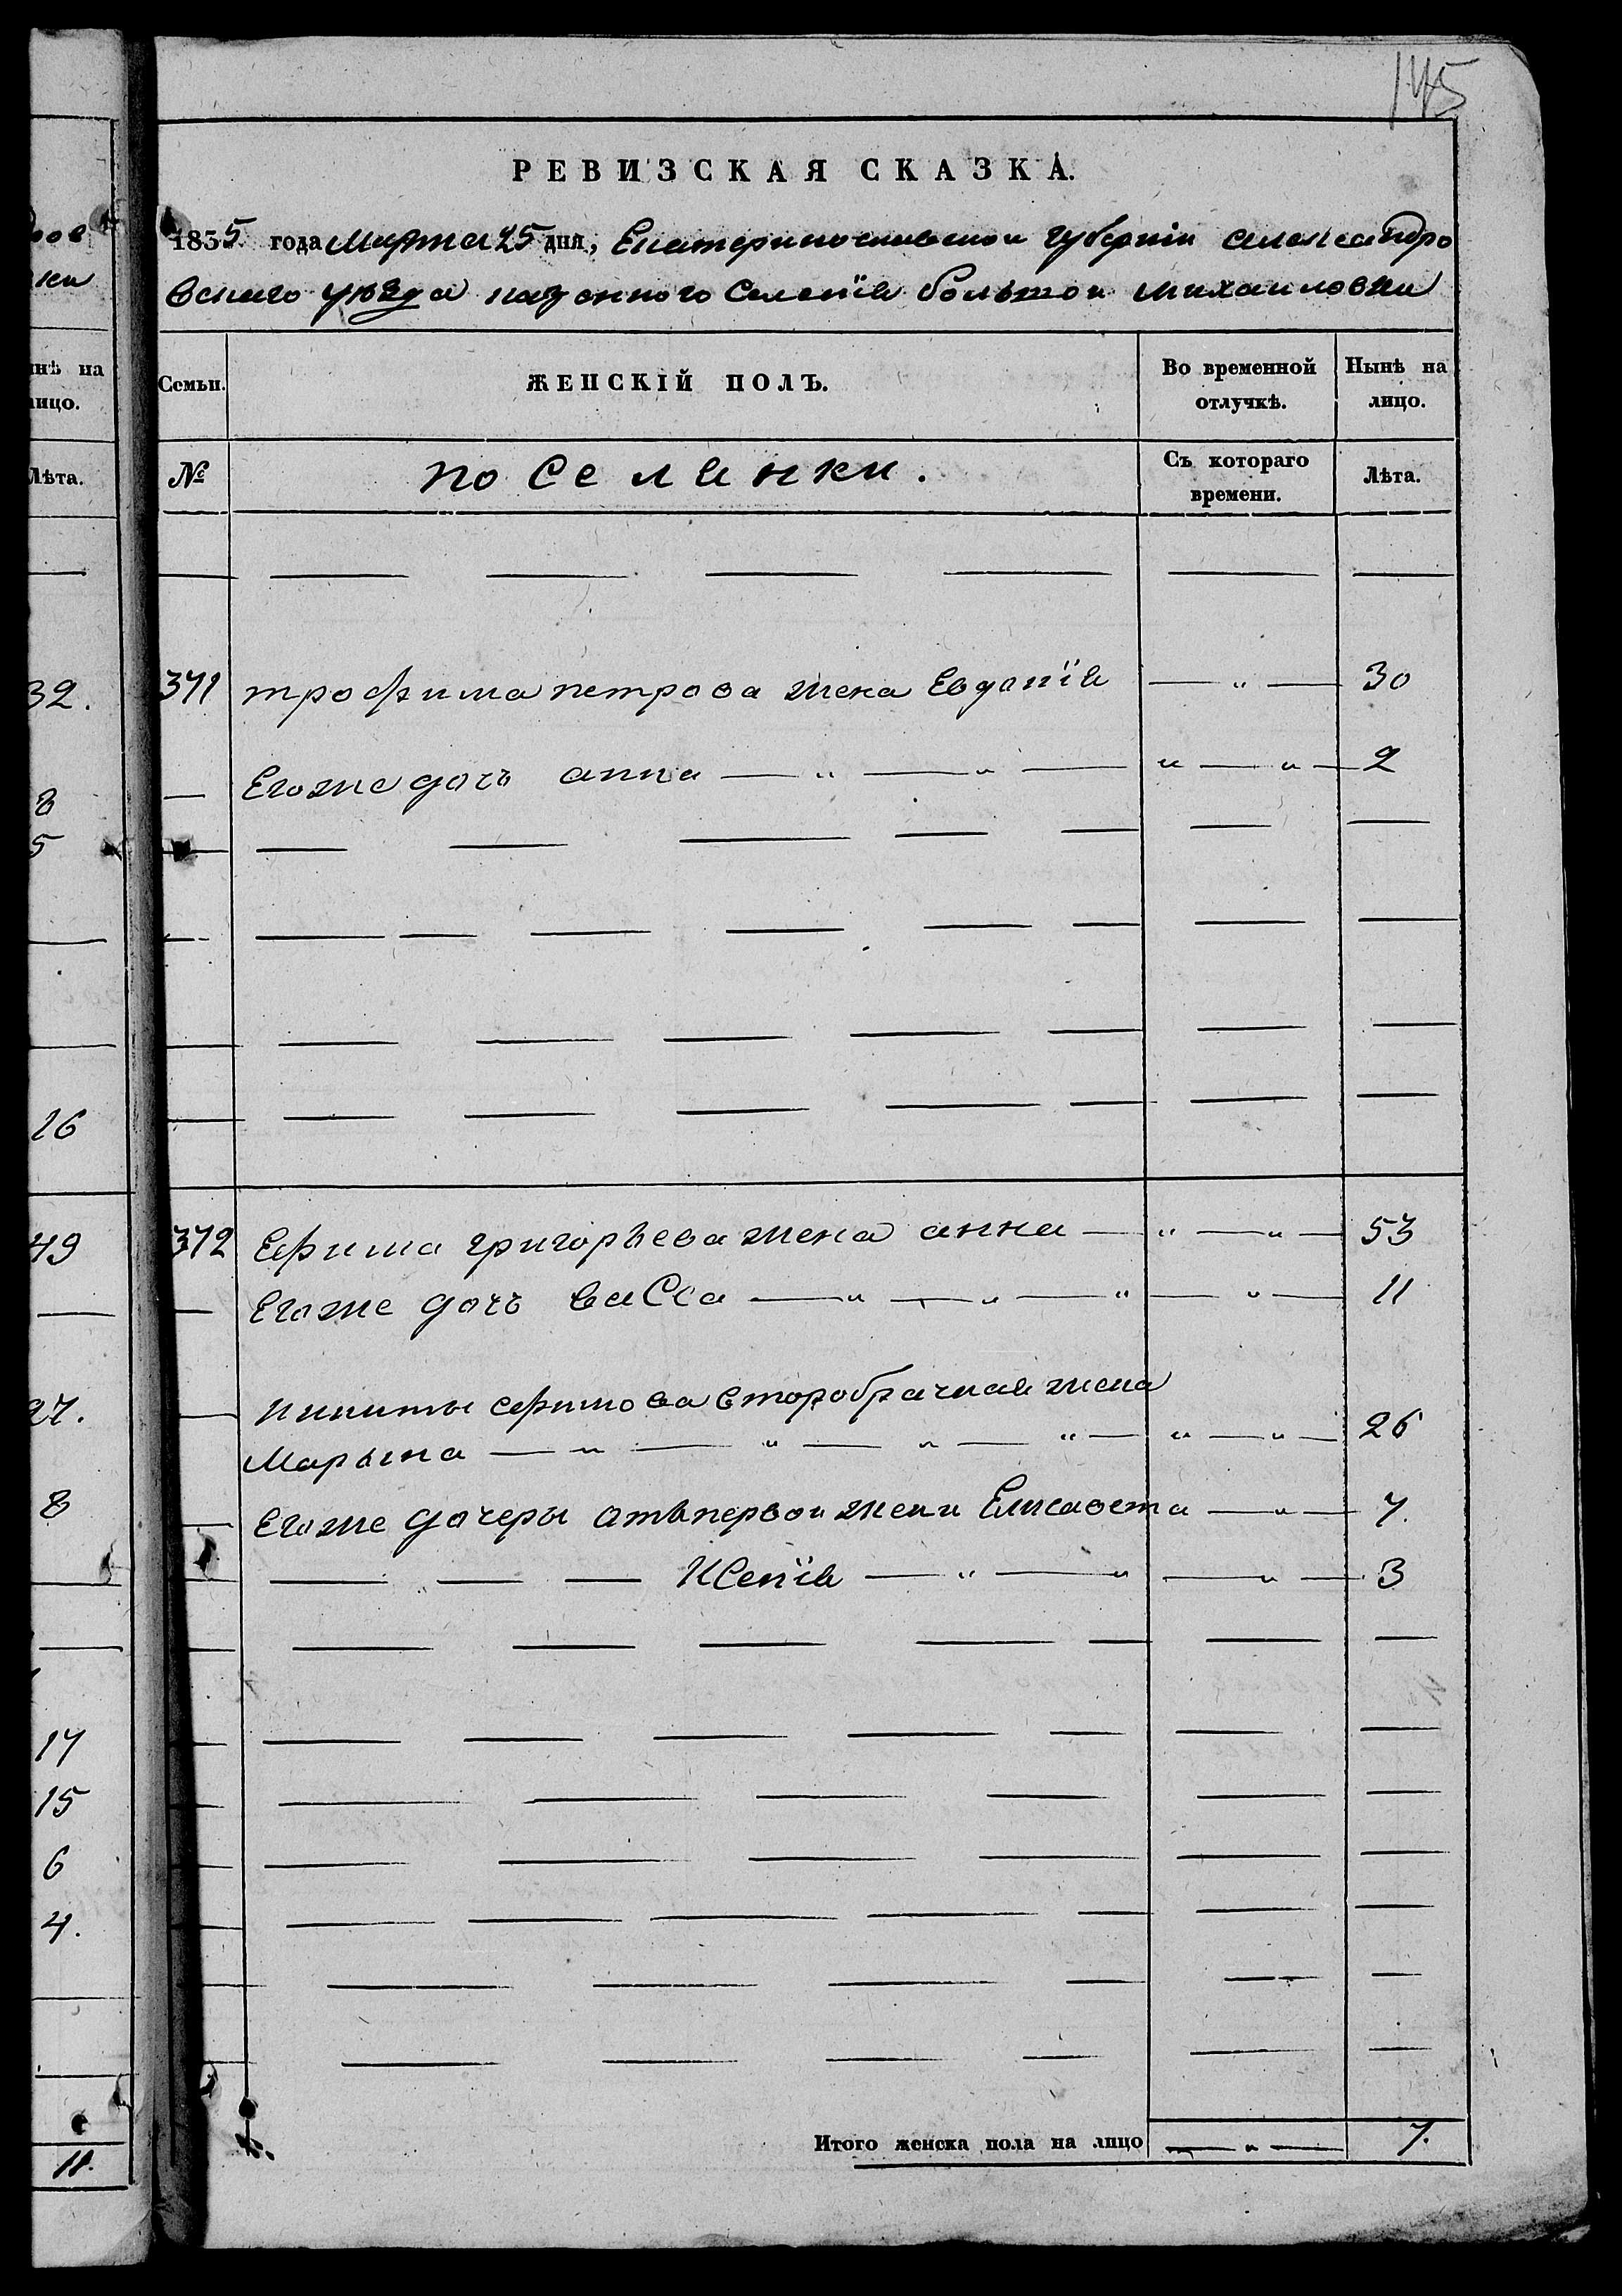 145
РЕВИЗСКАЯ СКАЗКА.
1835 года Марта 25 дня, Екатеринославской губернiи александро
вскаго уѣзда казенного Селенiя большой михаиловки
Семьи.
ЖЕНСКIЙ ПОЛЪ.
Во временной отлучкѣ.
Нынѣ на лицо.
№
поселянки.
Съ котораго времени.
Лѣта.
371 трофима петрова жена Евдокiя — " — 30
— Егоже дочь анна — " — " — " — " — 2
372 Ефима григорьева жена анна — " — " — 53
— Егоже дочь васса — " — " — " — " — 11
— Никиты ефимова второбрачная жена
Марьяна — " — " — " — " — " — " — 26
— Егоже дочеры отъ первой жены Елисавета — " — 7.
— " — — Ксенiя — " — " — " — 3
Итого женска пола на лицо — " — 7.
нѣ на
лицо.
Лѣта.
32.
8
5
16
49
27.
8
17
15
6
4.
11.